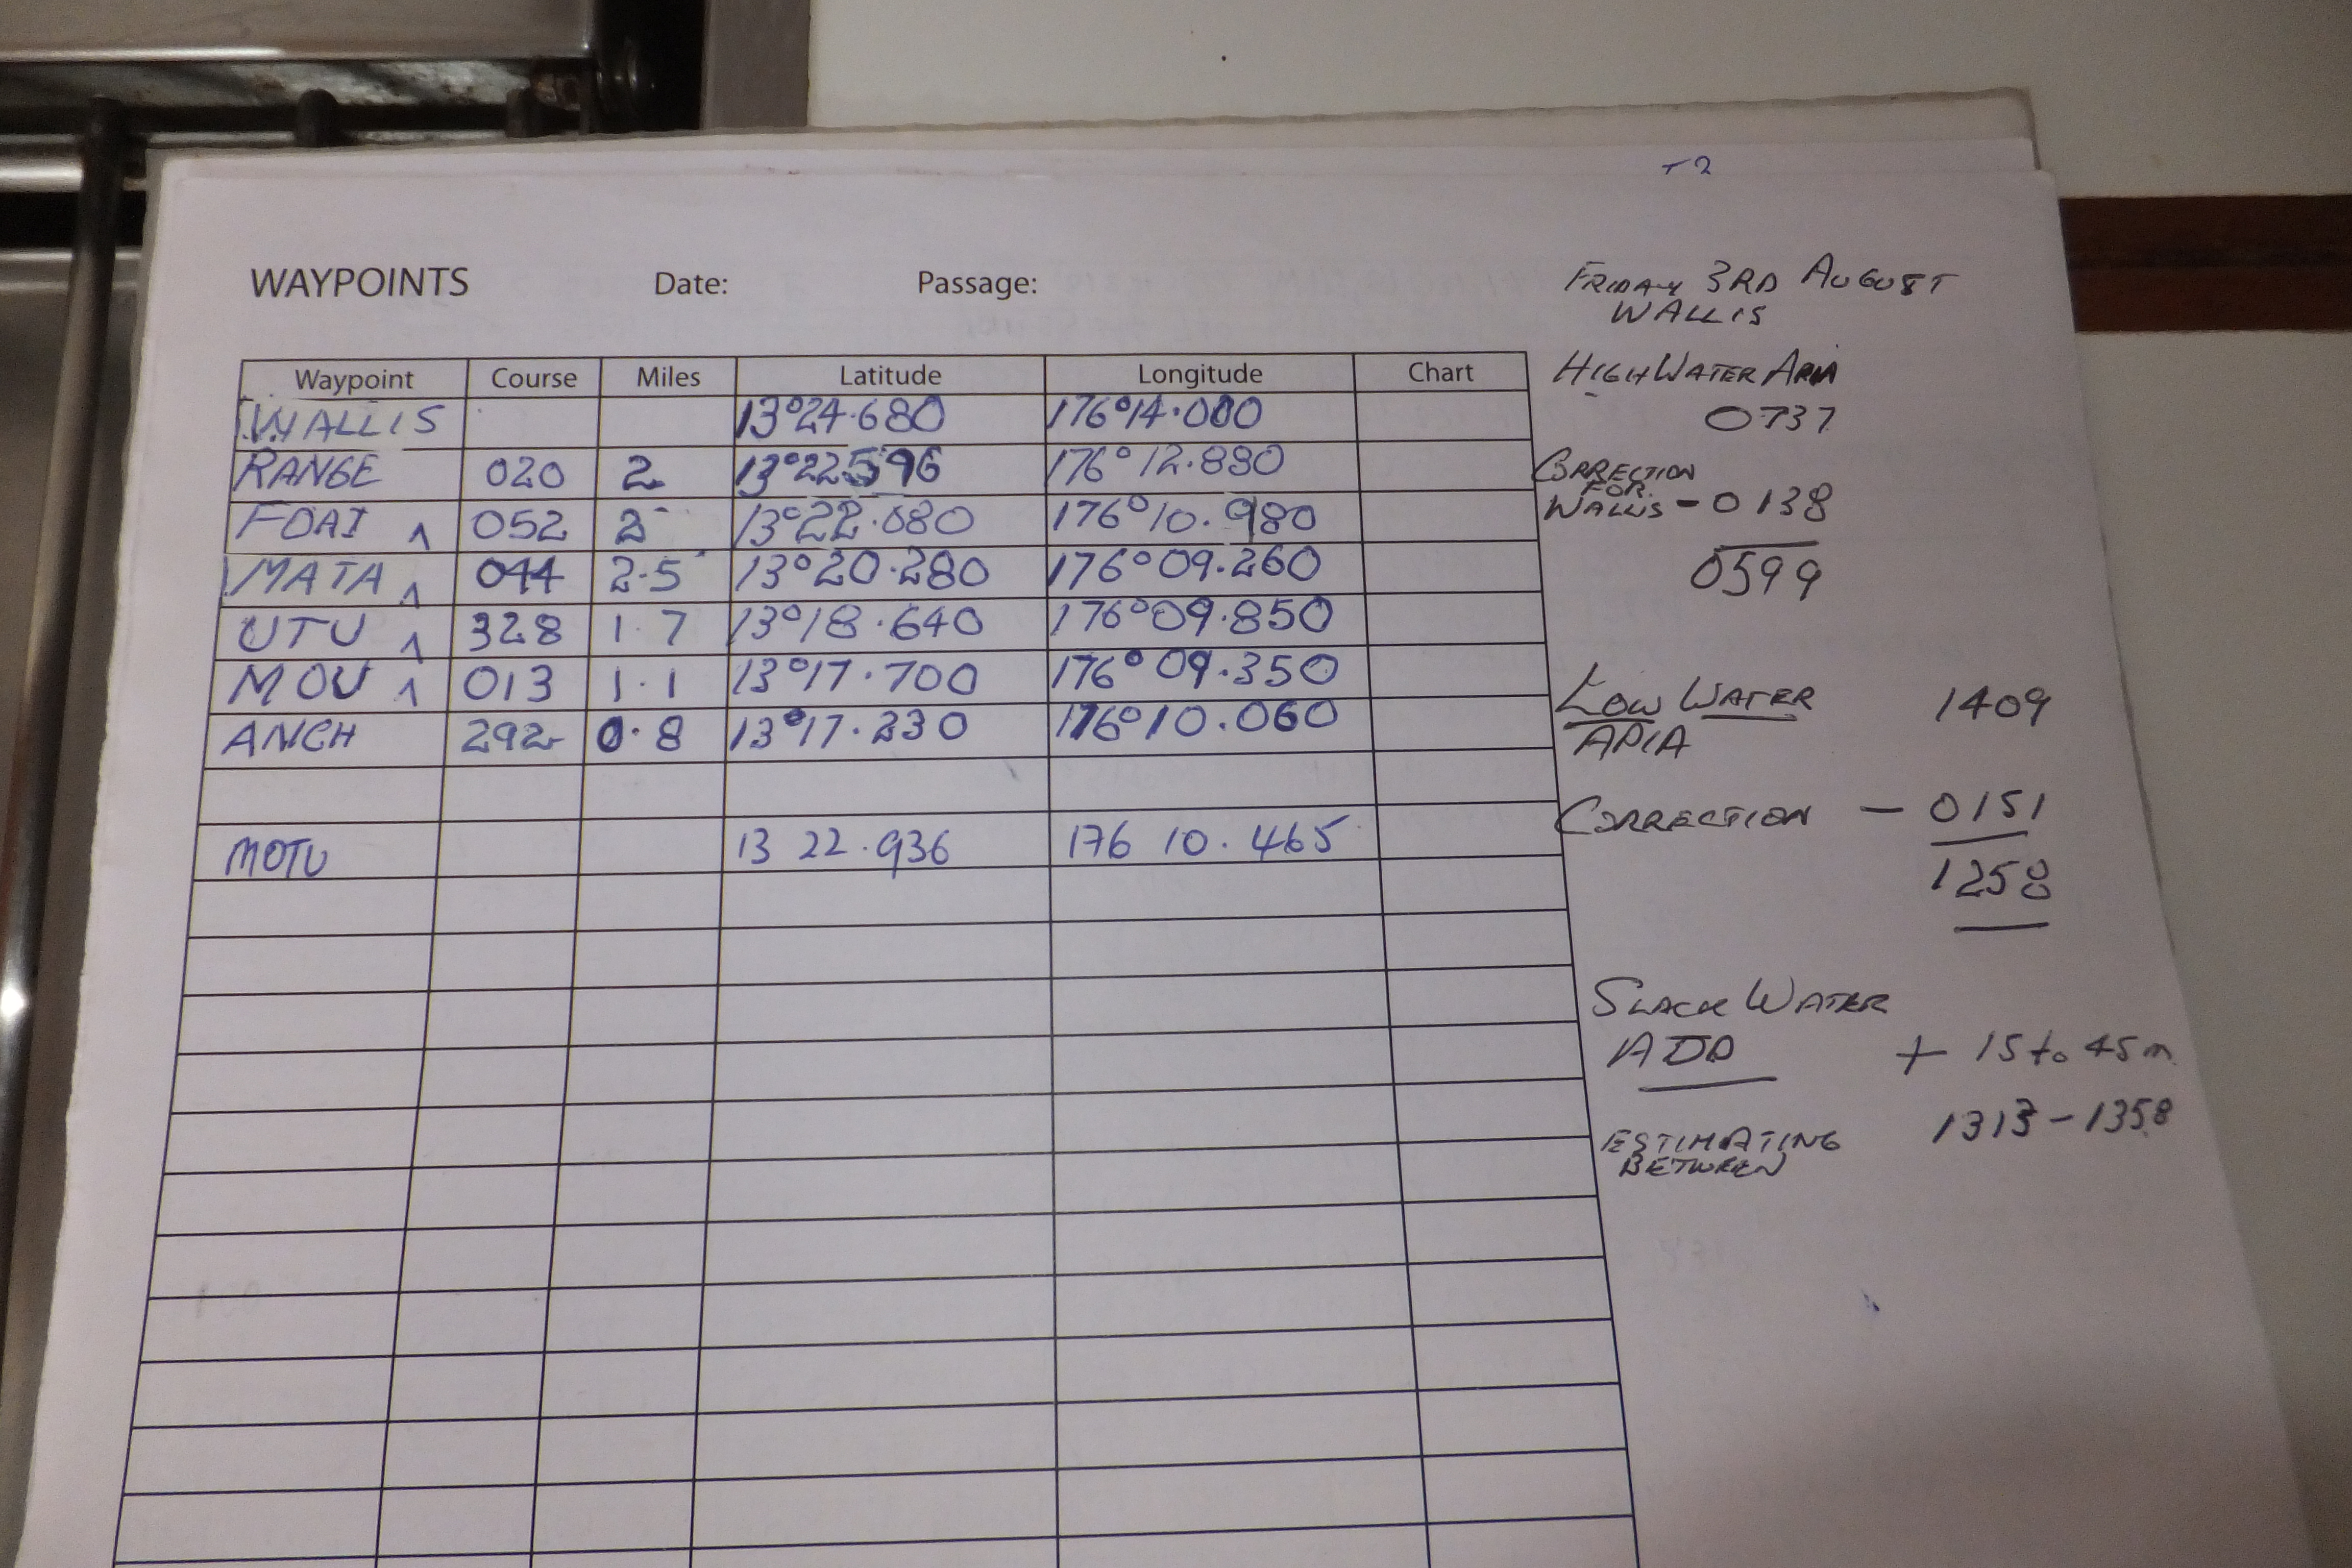 WAYPOINTS Date: Passage:
Waypoint Course Miles Latitude Longitude Chart
WALLIS 13°24.680 176°14.000
RANGE 020 2 13°22596 176°12.880
FOAI ʌ 052 2 13°22.080 176°10.980
MATA ʌ 044 2.5 13°20.280 176°09.260
UTU ʌ 328 1.7 13°18.640 176°09.850
MOU ʌ 013 1.1 13°17.700 176°09.350
ANCH 292 0.8 13°17.230 176°10.060
MOTU 13 22.936 176 10.465
FRIDAY 3RD AUGUST
WALLIS
HIGH WATER APIA
0737
CORRECTION
FOR
WALLIS - 0138
0599
LOW WATER 1409
APIA
CORRECTION - 0151
1258
SLACK WATER
ADD + 15 to 45 m
ESTIMATING 1313 - 1358
BETWEEN